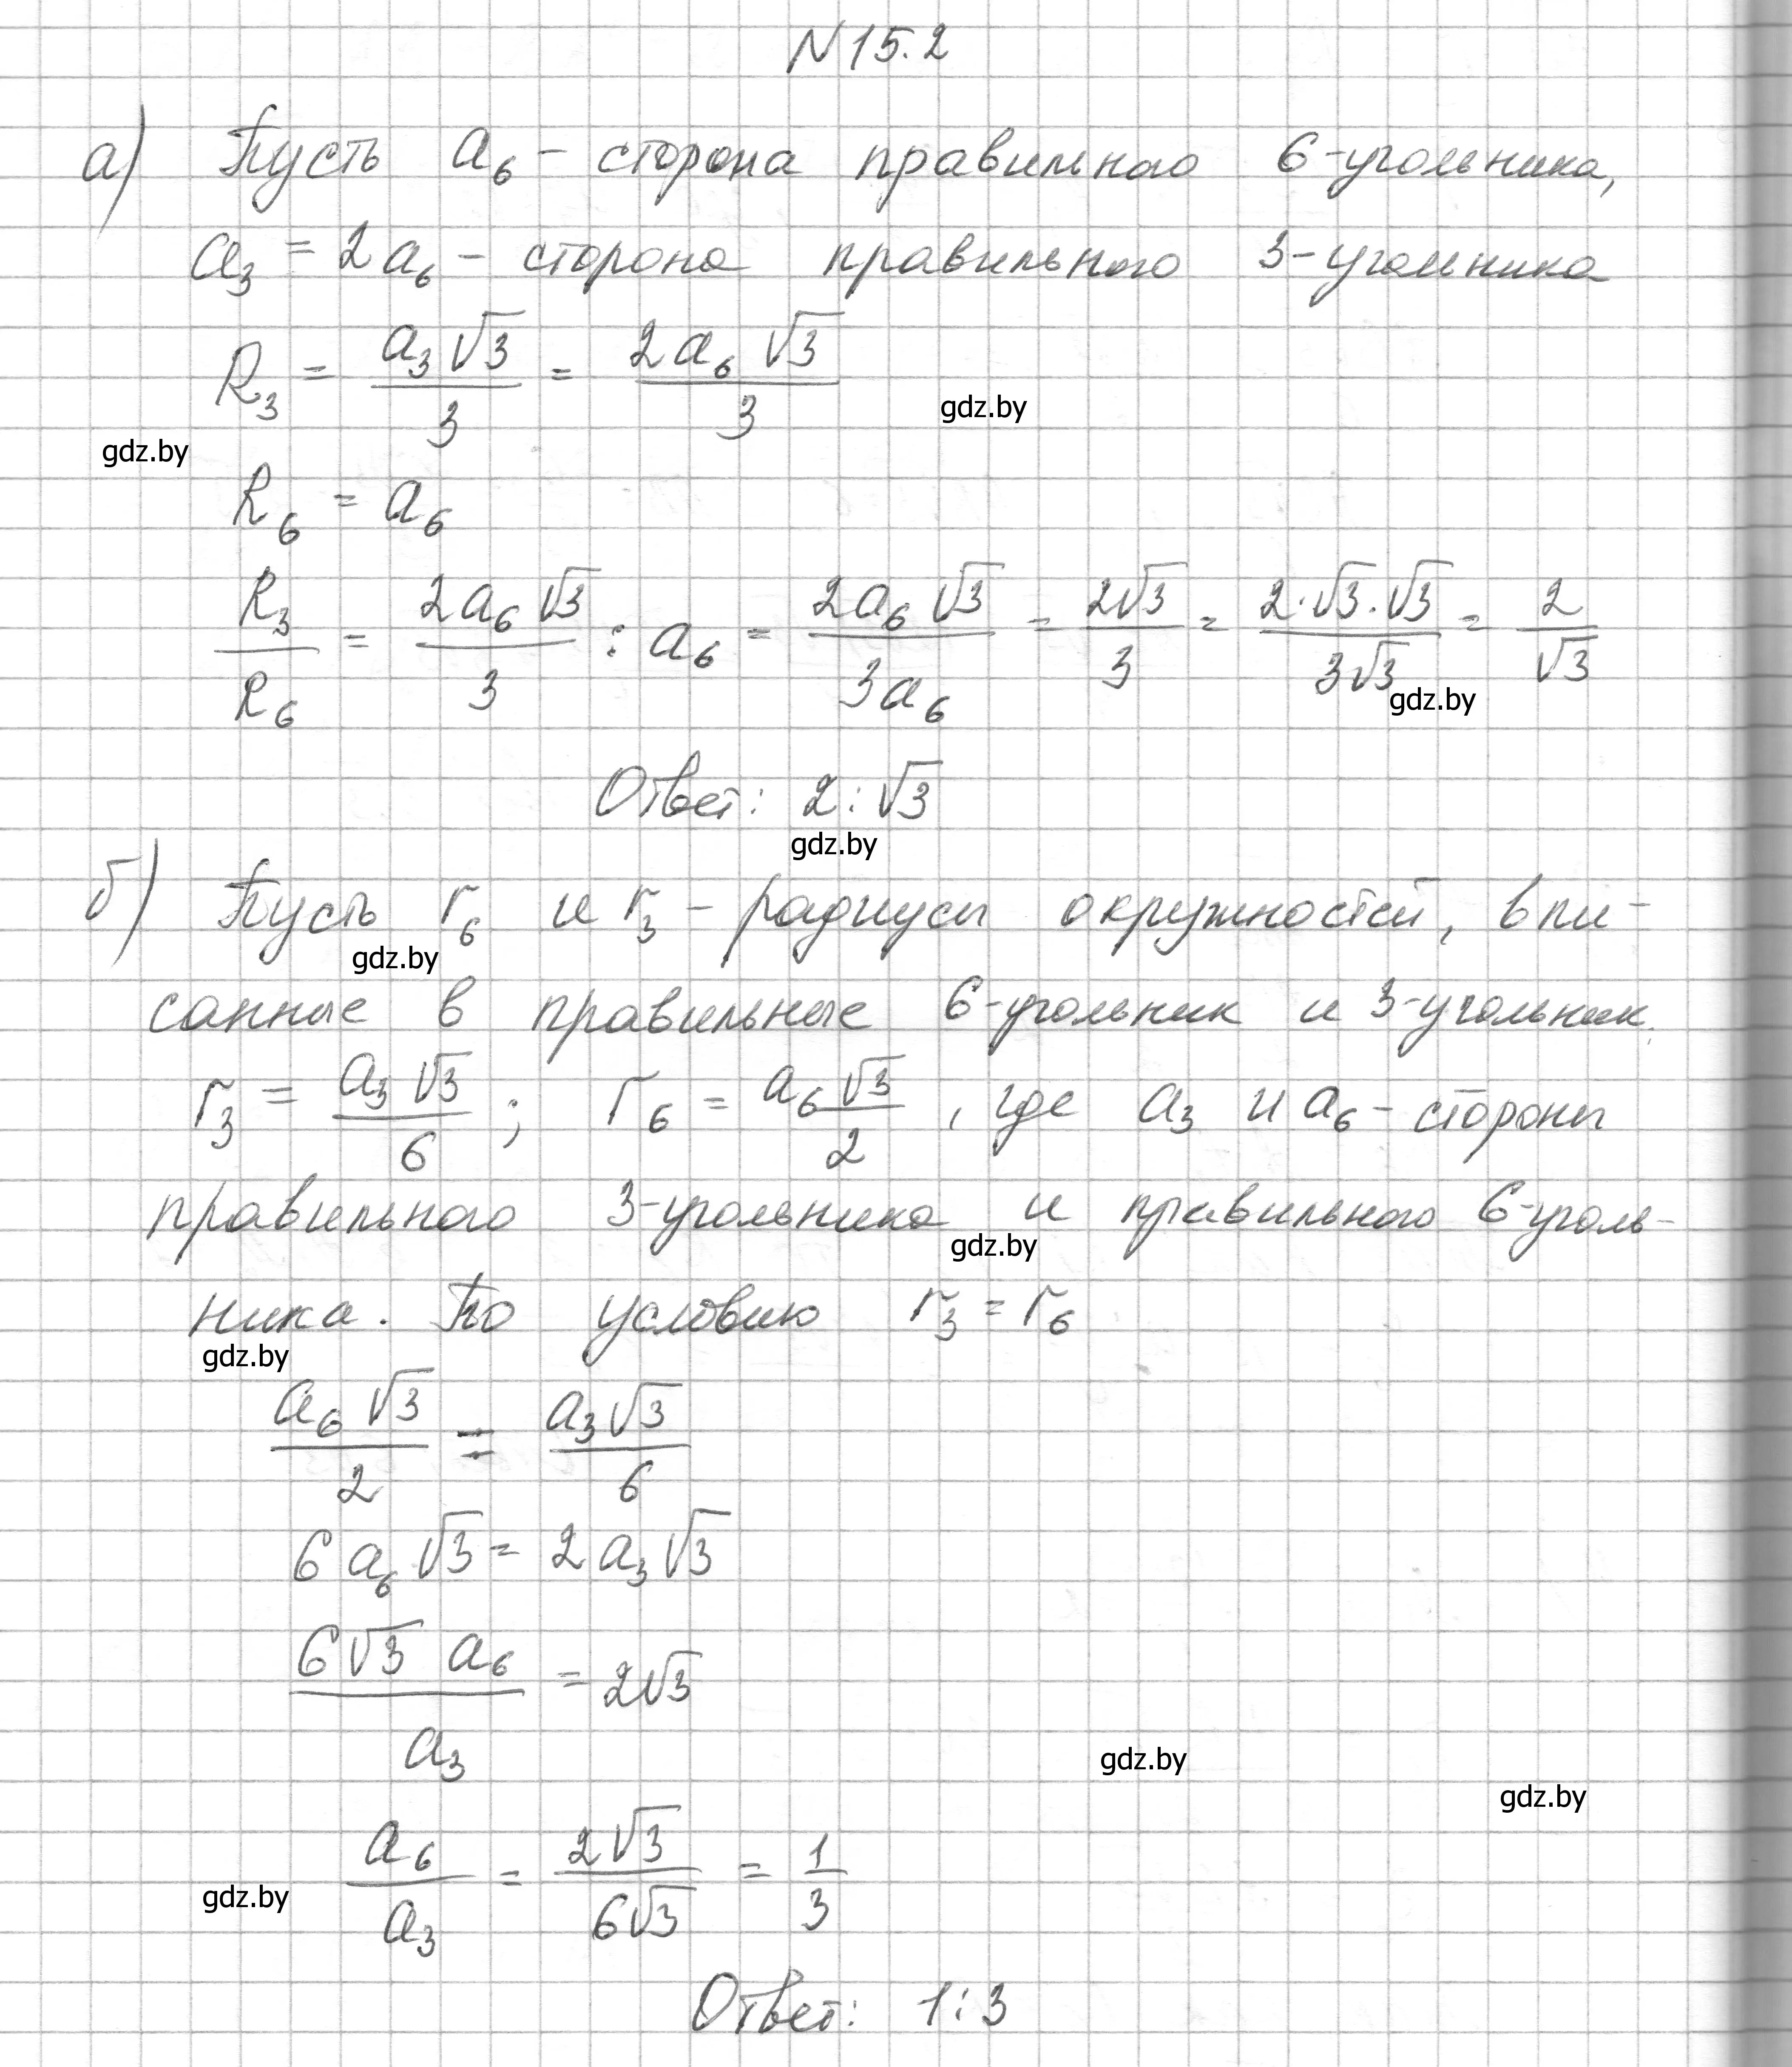 N15.2
а) Пусть a₆ - сторона правильного 6-угольника,
a₃ = 2a₆ - сторона правильного 3-угольника
R₃ = a₃√3/3 = 2a₆√3/3
gdz.by
gdz.by
R₆ = a₆
R₃/R₆ = 2a₆√3/3 : a₆ = 2a₆√3/3a₆ = 2√3/3 = 2·√3·√3/3√3 = 2/√3
gdz.by
Ответ: 2:√3
gdz.by
б) Пусть r₆ и r₃ - радиусы окружностей, впи-
gdz.by
санные в правильные 6-угольник и 3-угольник.
r₃ = a₃√3/6; r₆ = a₆√3/2, где a₃ и a₆ - стороны
правильного 3-угольника и правильного 6-уголь-
gdz.by
ника. По условию r₃ = r₆
gdz.by
a₆√3/2 = a₃√3/6
6a₆√3 = 2a₃√3
6√3 a₆/a₃ = 2√3
gdz.by
gdz.by
a₆/a₃ = 2√3/6√3 = 1/3
gdz.by
Ответ: 1:3